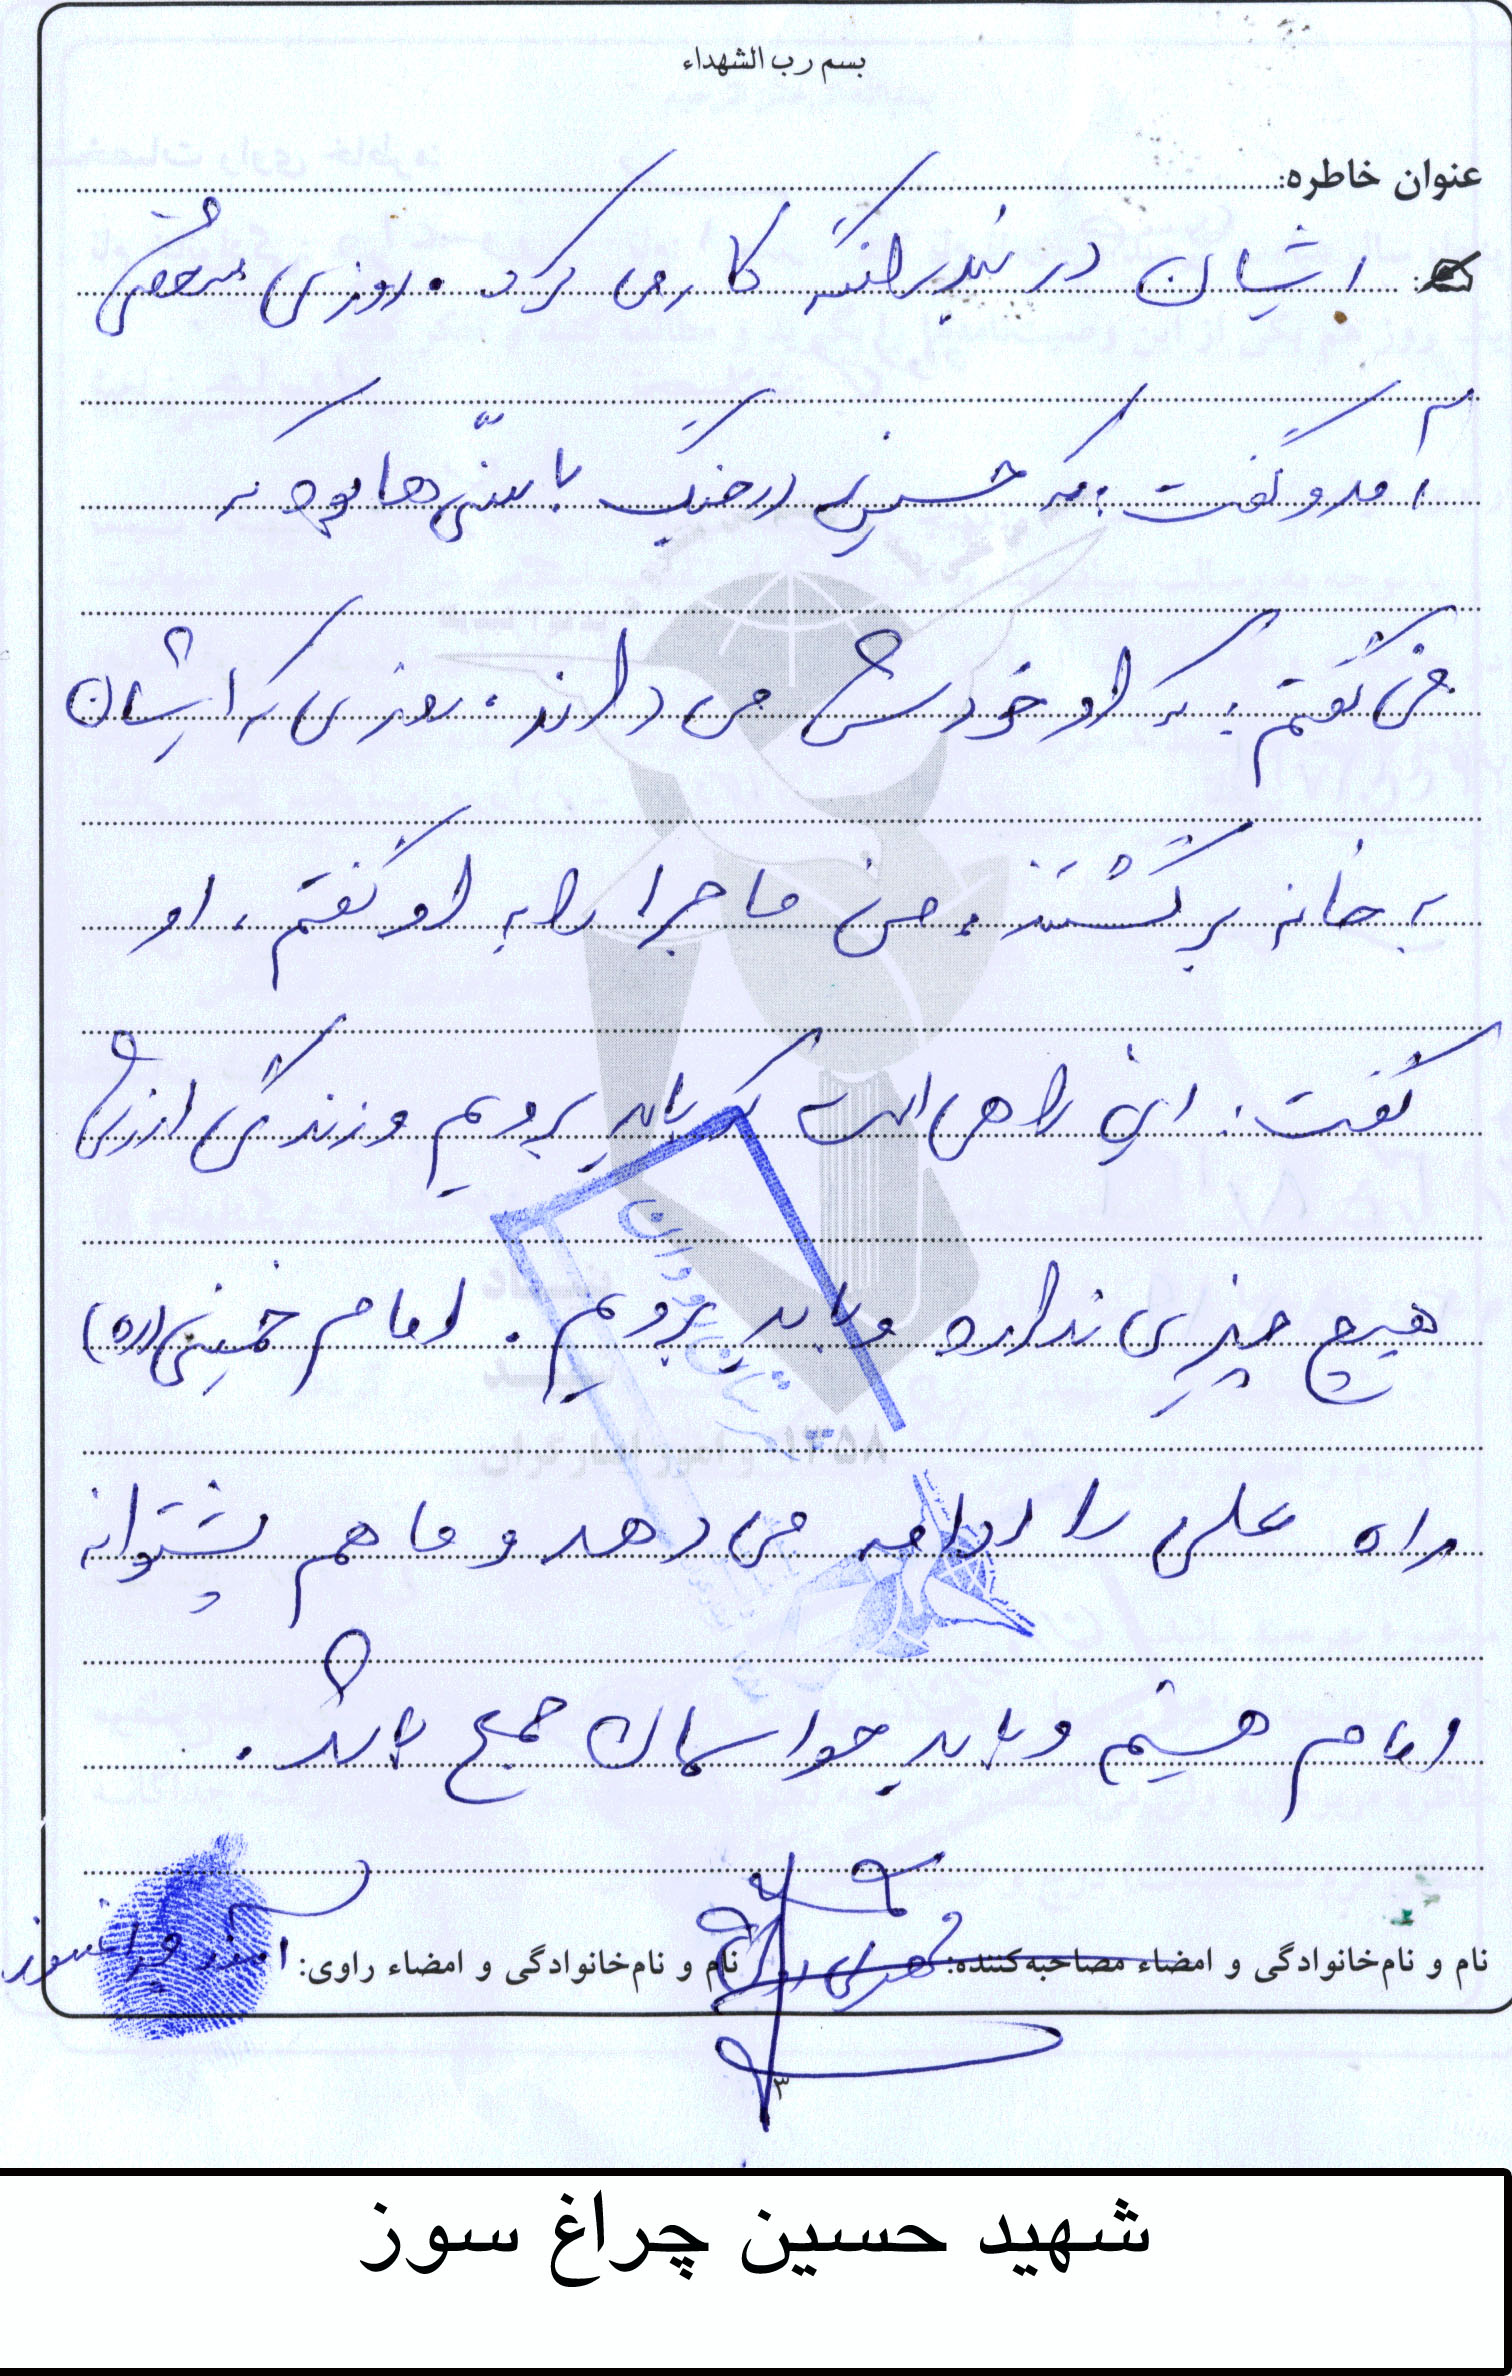 بسم رب الشهداء
عنوان خاطره:
ایشان در بندرلنگه کار می کرد. روزی شخصی
آمد و گفت: که حسین در جنگ با سنّی ها بوده که
من گفتم: که او خودش می داند. روزی که ایشان
به خانه برگشتند، من ماجرا را به او گفتم، او
گفت: این راهی است که باید برویم و زندگی ارزش
هیچ چیزی ندارد و باید برویم. امام خمینی (ره)
راه علی را ادامه می دهد و ما هم پشتوانه
امام هستیم و باید حواسمان جمع باشد.
نام و نام‌خانوادگی و امضاء مصاحبه‌کننده: نام و نام‌خانوادگی و امضاء راوی: چراغ سوز
۳
۱۳۵۸
شهید حسین چراغ سوز